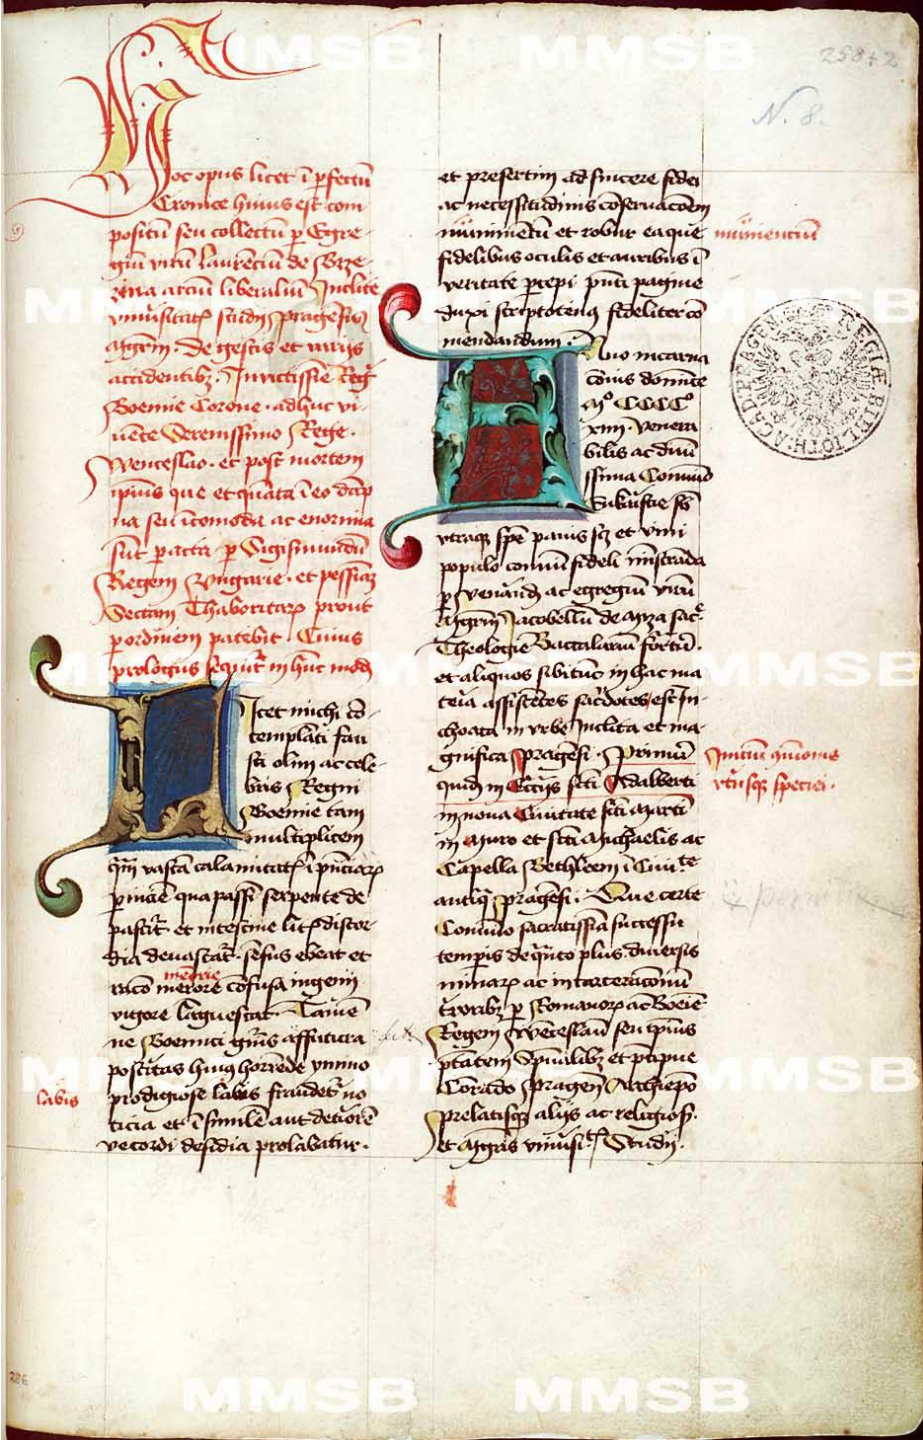 258 + 2
N. 8.
Hoc opus licet ĩperfectũ
Cronice huius est com
positũ seu collectũ p Egre
giũ virũ Laurẽciũ de Brze
zina arciũ liberaliũ Inclite
vniũsitatꝭ studij pragẽsis
Mgrm̃. De gestis et varijs
accidentibꝫ. Invictissĩe Reg̃
Boemie Corone. adhuc vi
uẽte Serenissimo Rege.
Wenceslao. et post mortem
ipius que et quãta ĩ eo dãp
na seu ĩcomoda ac enormia
sũt pacta p Sigismundũ
Regem Vngarie. et pessiãꝫ
Sectam Thaboritarꝝ prout
p ordinem patebit. Cuius
prologus sequit̃ in hũc modũ
Licet michi cõ
templãti fau
sti olim ac cele
bris Regni
Boemie tam
multiplicem
qm̃ vastã calamitatꝭ ĩ pñciarꝝ
pniciẽ qua passĩ serpente de
pascit̃. et intestine litꝭ discor
dia deuastat̃. sẽsus ebeat et
racõ merore cõfusa ingenij
merore
vigore lãguescat. Tamẽ
ne Boemici gñis affutura
postitas huiꝯ horrẽde ymmo
prodigiose labis fraudet̃ no
labis
ticia et ĩ similẽ aut deĩorẽ
vecordi desidia prolabatur.
et presertim ad sincere fidei
ac necessitudinis cõseruacõem
munimẽtũ et robur ea que
munimentum
fidelibus oculis et auribus ĩ
veritate pcepi pñti pagine
duxi scriptotenꝯ fideliter cõ
mendandum.
Anno incarna
cõnis dominice
Mº CCCCº
xiiij. Venera
bilis ac diuĩ
ssima Comunio
Eukaristie sb̃
vtraqꝫ spẽ panis sꝫ et vini
populo cõmuĩ fideli mĩstrãda
p venãdꝫ ac egregiũ virũ
Mgrm̃ Jacobellũ de Myza sac̃e
Theologie Baccalariũ fortũ.
et aliquos sibi tũc in hac ma
teĩa assistẽtes sac̃dotes est In
choata in vrbe Inclita et ma
gnifica Pragẽsi. Primũ
Iniciũ cõmuniõnis
quidẽ in Ecc̃ijs scti Adalberti
vtriusqꝫ speciei.
in noua Ciuitate scti Martĩ
in Muro et scti Michaelis ac
Capella Bethleem ĩ Ciuite
antiqͣ pragẽsi. Que certe
Comũio sacratissĩa successu
temp̃is de qͣnto plus. diuersis
minarꝝ ac incarceraciõnũ
t̃roribꝫ p Romanorꝝ ac Boeiẽ
Regem Wẽceslaũ seu ipius
ptãtem Sp̃ualibꝫ et p̃cipue
Cõrãdo Pragen̄ Archiepõ
prelatisqꝫ alijs ac religios̃.
et Mgr̃is vniũsitꝭ Studij.
REGIÆ BIBLIOTH: ACAD: PRAGEN:
286
MMSB